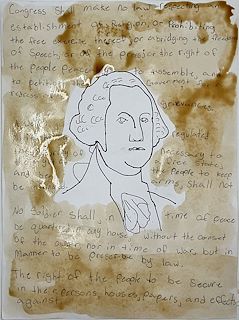 Congress shall make no law respecting an
establishment of religion, or prohibiting
the free exercise thereof; or abridging the freedom
of speech, or of the press; or the right of
the people peaceably to assemble, and
to petition the Government for
redress of grievances.
regulated
necessary to
free State
People to keep
arms, shall not
No Soldier shall, in time of peace
be quartered in any house, without the consent
of the owner, nor in time of war, but in
Manner to be prescribe by law.
The right of the People to be secure
in their persons, houses, papers, and effects,
against